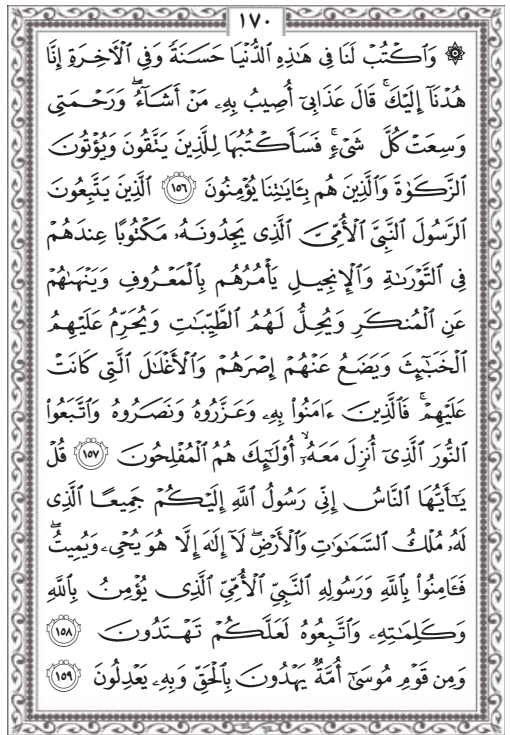 ١٧٠
۞ وَٱكۡتُبۡ لَنَا فِي هَٰذِهِ ٱلدُّنۡيَا حَسَنَةٗ وَفِي ٱلۡأٓخِرَةِ إِنَّا
هُدۡنَآ إِلَيۡكَۚ قَالَ عَذَابِيٓ أُصِيبُ بِهِۦ مَنۡ أَشَآءُۖ وَرَحۡمَتِي
وَسِعَتۡ كُلَّ شَيۡءٖۚ فَسَأَكۡتُبُهَا لِلَّذِينَ يَتَّقُونَ وَيُؤۡتُونَ
ٱلزَّكَوٰةَ وَٱلَّذِينَ هُم بِـَٔايَٰتِنَا يُؤۡمِنُونَ ١٥٦ ٱلَّذِينَ يَتَّبِعُونَ
ٱلرَّسُولَ ٱلنَّبِيَّ ٱلۡأُمِّيَّ ٱلَّذِي يَجِدُونَهُۥ مَكۡتُوبًا عِندَهُمۡ
فِي ٱلتَّوۡرَىٰةِ وَٱلۡإِنجِيلِ يَأۡمُرُهُم بِٱلۡمَعۡرُوفِ وَيَنۡهَىٰهُمۡ
عَنِ ٱلۡمُنكَرِ وَيُحِلُّ لَهُمُ ٱلطَّيِّبَٰتِ وَيُحَرِّمُ عَلَيۡهِمُ
ٱلۡخَبَٰٓئِثَ وَيَضَعُ عَنۡهُمۡ إِصۡرَهُمۡ وَٱلۡأَغۡلَٰلَ ٱلَّتِي كَانَتۡ
عَلَيۡهِمۡۚ فَٱلَّذِينَ ءَامَنُواْ بِهِۦ وَعَزَّرُوهُ وَنَصَرُوهُ وَٱتَّبَعُواْ
ٱلنُّورَ ٱلَّذِيٓ أُنزِلَ مَعَهُۥٓ أُوْلَٰٓئِكَ هُمُ ٱلۡمُفۡلِحُونَ ١٥٧ قُلۡ
يَٰٓأَيُّهَا ٱلنَّاسُ إِنِّي رَسُولُ ٱللَّهِ إِلَيۡكُمۡ جَمِيعًا ٱلَّذِي
لَهُۥ مُلۡكُ ٱلسَّمَٰوَٰتِ وَٱلۡأَرۡضِۖ لَآ إِلَٰهَ إِلَّا هُوَ يُحۡيِۦ وَيُمِيتُۖ
فَـَٔامِنُواْ بِٱللَّهِ وَرَسُولِهِ ٱلنَّبِيِّ ٱلۡأُمِّيِّ ٱلَّذِي يُؤۡمِنُ بِٱللَّهِ
وَكَلِمَٰتِهِۦ وَٱتَّبِعُوهُ لَعَلَّكُمۡ تَهۡتَدُونَ ١٥٨
وَمِن قَوۡمِ مُوسَىٰٓ أُمَّةٞ يَهۡدُونَ بِٱلۡحَقِّ وَبِهِۦ يَعۡدِلُونَ ١٥٩